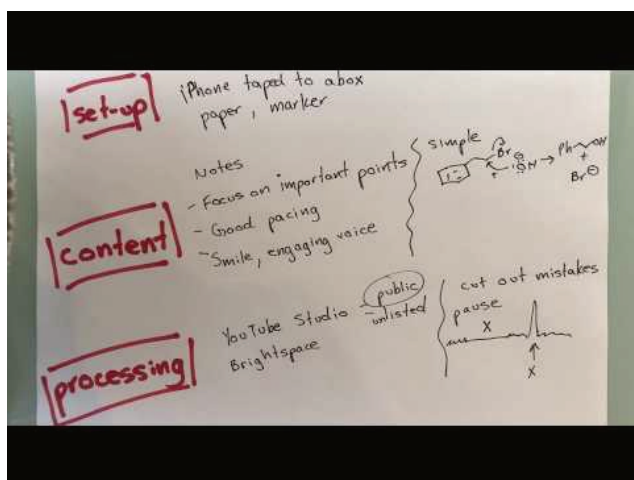 set-up
iPhone taped to a box
paper, marker
content
Notes
- Focus on important points
- Good pacing
- Smile, engaging voice
simple
Br
OH
Ph OH
+
Br⊖
processing
YouTube Studio - public
- unlisted
Brightspace
cut out mistakes
pause
x
x